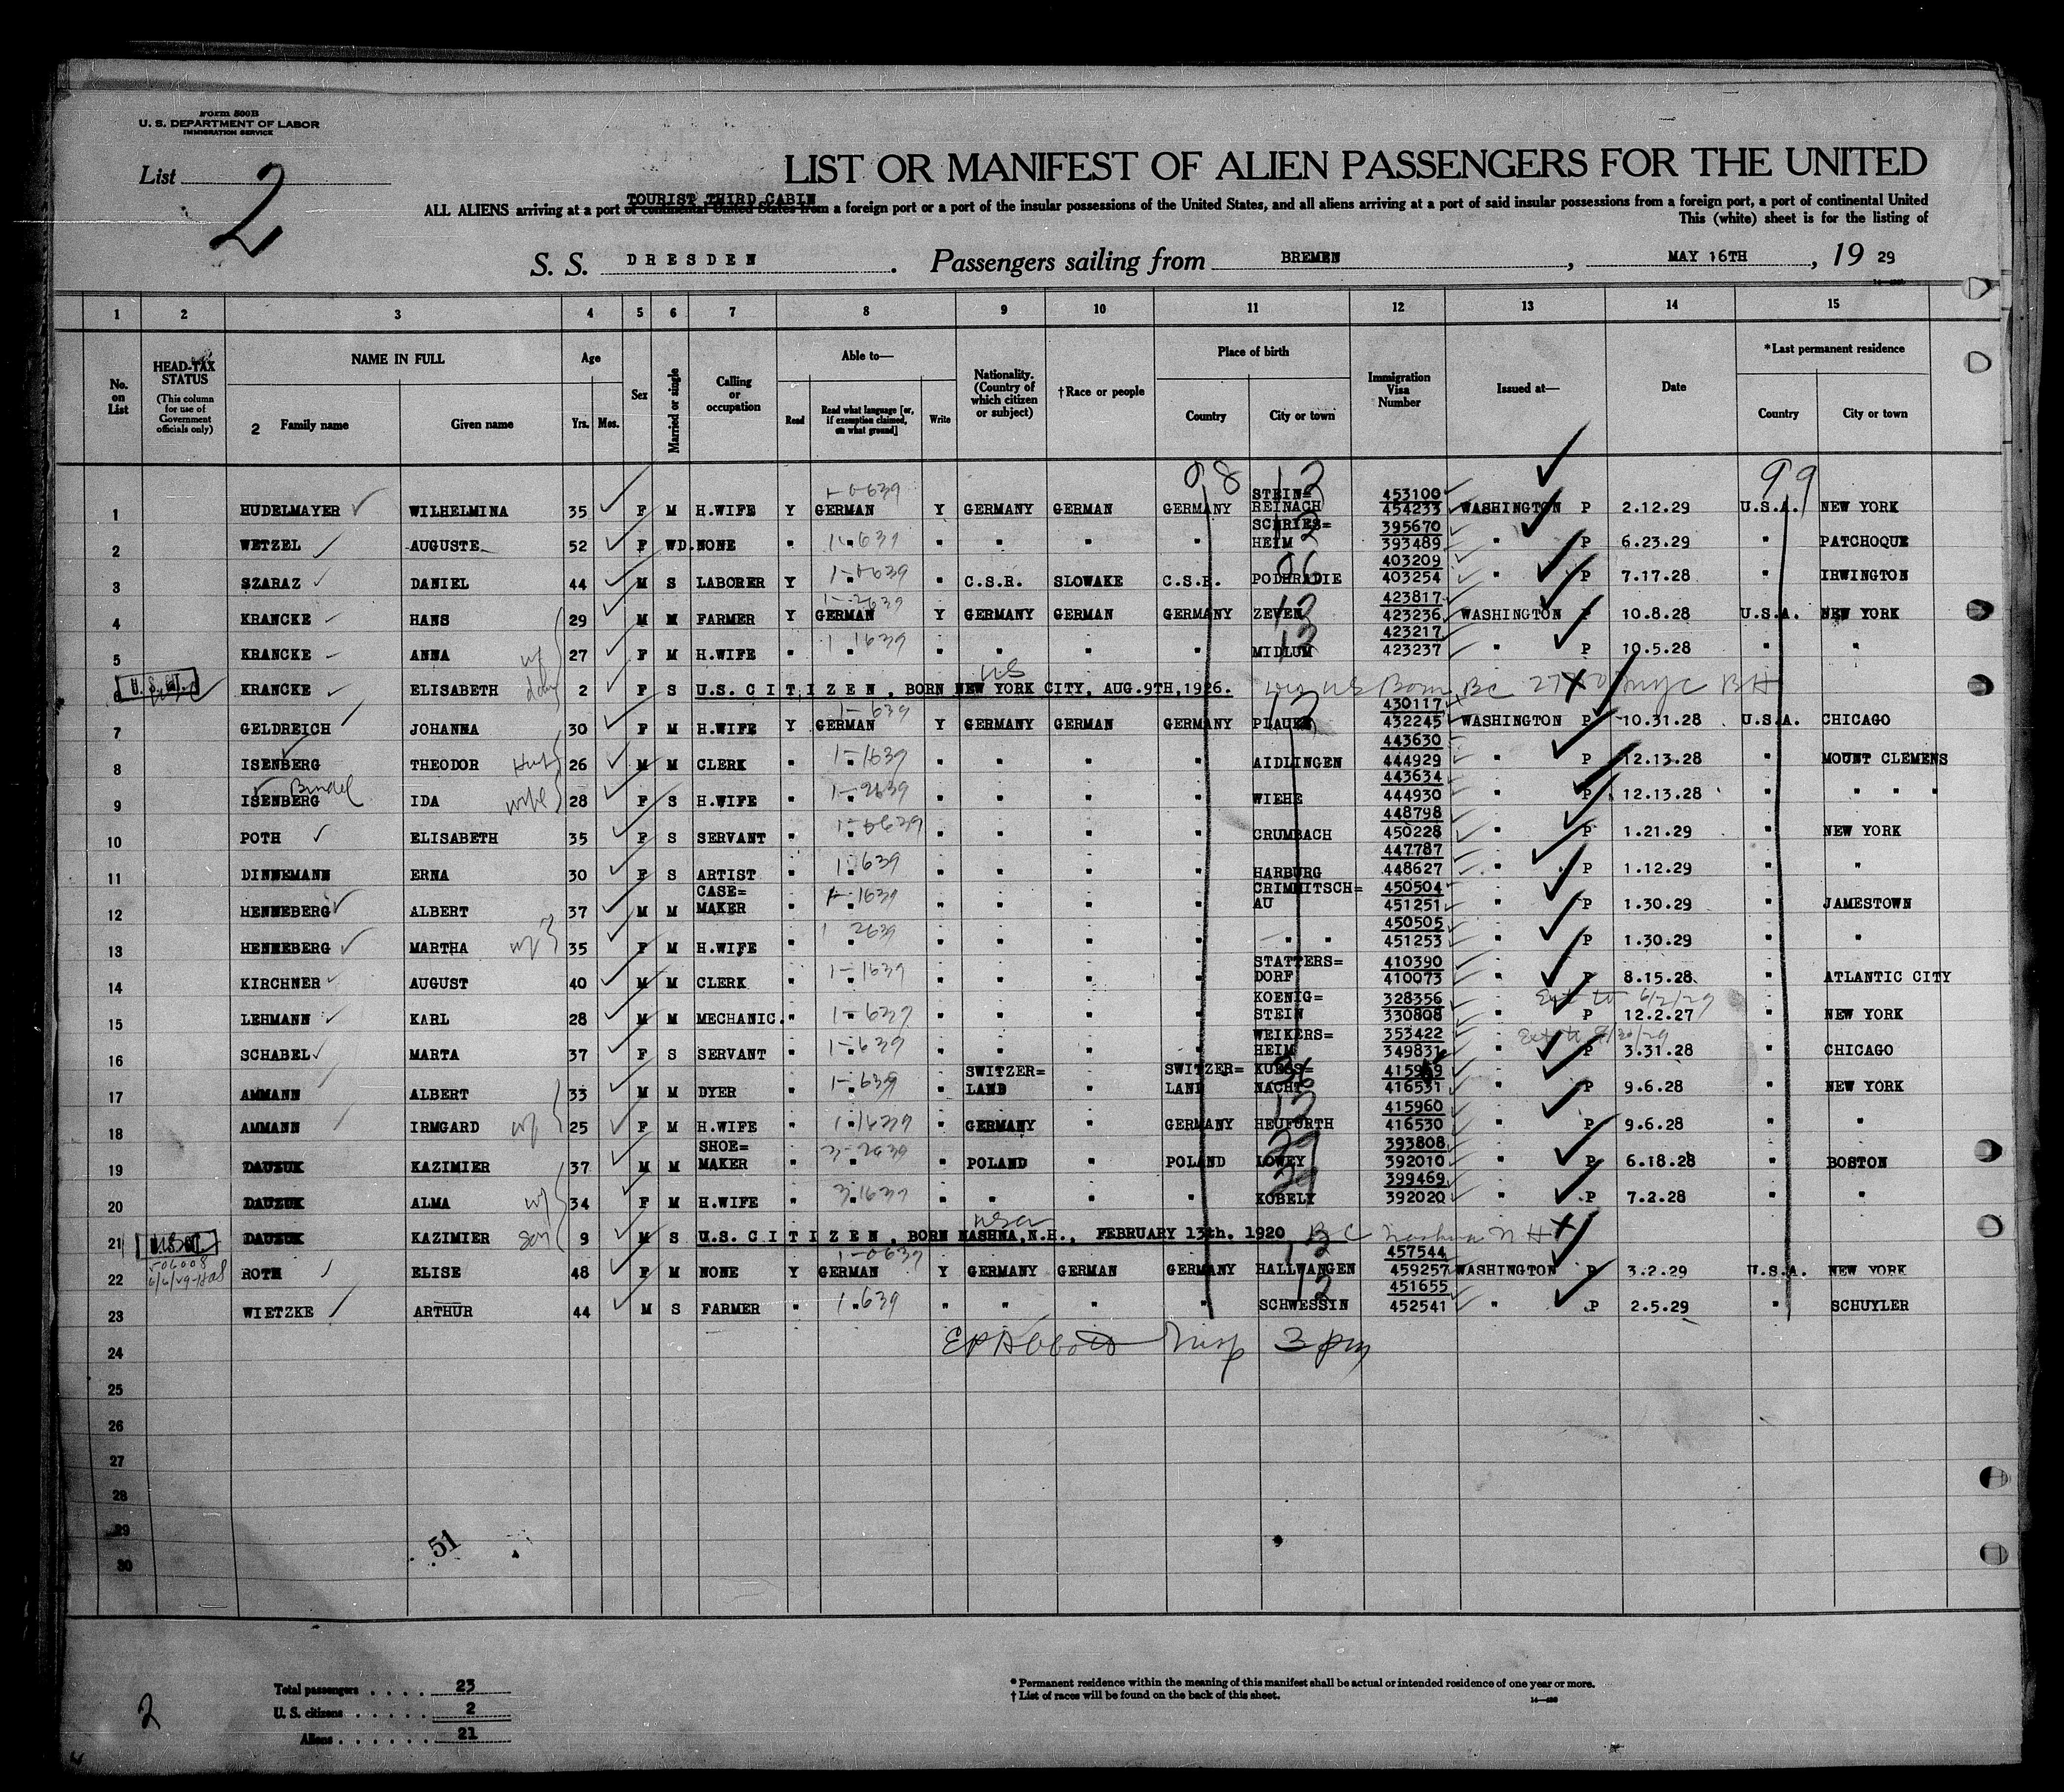 Form 500B
U. S. DEPARTMENT OF LABOR
IMMIGRATION SERVICE
List 2
LIST OR MANIFEST OF ALIEN PASSENGERS FOR THE UNITED
TOURIST THIRD CABIN
ALL ALIENS arriving at a port of continental United States from a foreign port or a port of the insular possessions of the United States, and all aliens arriving at a port of said insular possessions from a foreign port, a port of continental United
This (white) sheet is for the listing of
S. S. DRESDEN. Passengers sailing from BREMEN, MAY 16TH, 19 29
1 2 3 4 5 6 7 8 9 10 11 12 13 14 15
No. on List
HEAD-TAX STATUS (This column for use of Government officials only)
NAME IN FULL
2 Family name Given name
Age Yrs. Mos.
Sex
Married or single
Calling or occupation
Able to— Read Read what language [or, if exemption claimed, on what ground] Write
Nationality. (Country of which citizen or subject)
†Race or people
Place of birth Country City or town
Immigration Visa Number
Issued at—
Date
*Last permanent residence Country City or town
98 99
1 HUDELMAYER WILHELMINA 35 F M H.WIFE Y GERMAN Y GERMANY GERMAN GERMANY STEIN= REINACH 453100 454233 WASHINGTON P 2.12.29 U.S.A. NEW YORK
2 WETZEL AUGUSTE 52 F WD. NONE " " " " " " SCHRIES= HEIM 395670 393489 " P 6.23.29 " PATCHOQUE
3 SZARAZ DANIEL 44 M S LABORER Y " " C.S.R. SLOWAKE C.S.R. PODHRADIE 403209 403254 " P 7.17.28 " IRWINGTON
4 KRANCKE HANS 29 M M FARMER Y GERMAN Y GERMANY GERMAN GERMANY ZEVEN 423817 423236 WASHINGTON P 10.8.28 U.S.A. NEW YORK
5 KRANCKE ANNA wf 27 F M H.WIFE " " " " " " MIDLUM 423217 423237 " P 10.5.28 " "
6 KRANCKE ELISABETH 2 F S U.S. CITIZEN, BORN NEW YORK CITY, AUG.9TH,1926.
7 GELDREICH JOHANNA 30 F M H.WIFE Y GERMAN Y GERMANY GERMAN GERMANY PLAUEN 430117 432245 WASHINGTON P 10.31.28 U.S.A. CHICAGO
8 ISENBERG THEODOR 26 M M CLERK " " " " " " AIDLINGEN 443630 444929 " P 12.13.28 " MOUNT CLEMENS
9 ISENBERG IDA wife 28 F S H.WIFE " " " " " " WIEHE 443634 444930 " P 12.13.28 " " " "
10 POTH ELISABETH 35 F S SERVANT " " " " " " CRUMBACH 448798 450228 " P 1.21.29 " NEW YORK
11 DINNEMANN ERNA 30 F S ARTIST " " " " " " HARBURG 447787 448627 " P 1.12.29 " "
12 HENNEBERG ALBERT 37 M M CASE= MAKER " " " " " " CRIMMITSCH= AU 450504 451251 " P 1.30.29 " JAMESTOWN
13 HENNEBERG MARTHA wf 35 F M H.WIFE " " " " " " " " 450505 451253 " P 1.30.29 " "
14 KIRCHNER AUGUST 40 M M CLERK " " " " " " STATTERS= DORF 410390 410073 " P 8.15.28. " ATLANTIC CITY
15 LEHMANN KARL 28 M M MECHANIC. " " " " " " KOENIG= STEIN 328356 330808 " Ext to 6/2/29 P 12.2.27 " NEW YORK
16 SCHABEL MARTA 37 F S SERVANT " " " " " " WEIKERS= HEIM 353422 349831 " P 3.31.28 " CHICAGO
17 AMMANN ALBERT 33 M M DYER " " " SWITZER= LAND " SWITZER= LAND NACHT 416531 " P 9.6.28 " NEW YORK
18 AMMANN IRMGARD wf 25 F M H.WIFE " " " GERMANY " GERMANY HEUFURTH 415960 416530 " P 9.6.28 " "
19 DAUZUK KAZIMIER 37 M M SHOE= MAKER " " " POLAND " POLAND LOWEY 393808 392010 " P 6.18.28 " BOSTON
20 DAUZUK ALMA wf 34 F M H.WIFE " " " " " " KOBELY 399469 392020 " P 7.2.28 " "
21 DAUZUK KAZIMIER son 9 M S U.S. CITIZEN, BORN NASHNA,N.H., FEBRUARY 13th. 1920 BC Nashua N H
22 ROTH ELISE 48 F M NONE Y GERMAN Y GERMANY GERMAN GERMANY HALLWANGEN 457544 459257 WASHINGTON P 3.2.29 U.S.A. NEW YORK
23 WIETZKE ARTHUR 44 M S FARMER " " " " " " SCHWESSIN 451655 452541 " P 2.5.29 " SCHUYLER
24 Insp 3 pm
25
26
27
28
29
30
51
Total passengers . . . . 23
U. S. citizens . . . . . 2
Aliens . . . . . . 21
2
* Permanent residence within the meaning of this manifest shall be actual or intended residence of one year or more.
† List of races will be found on the back of this sheet.